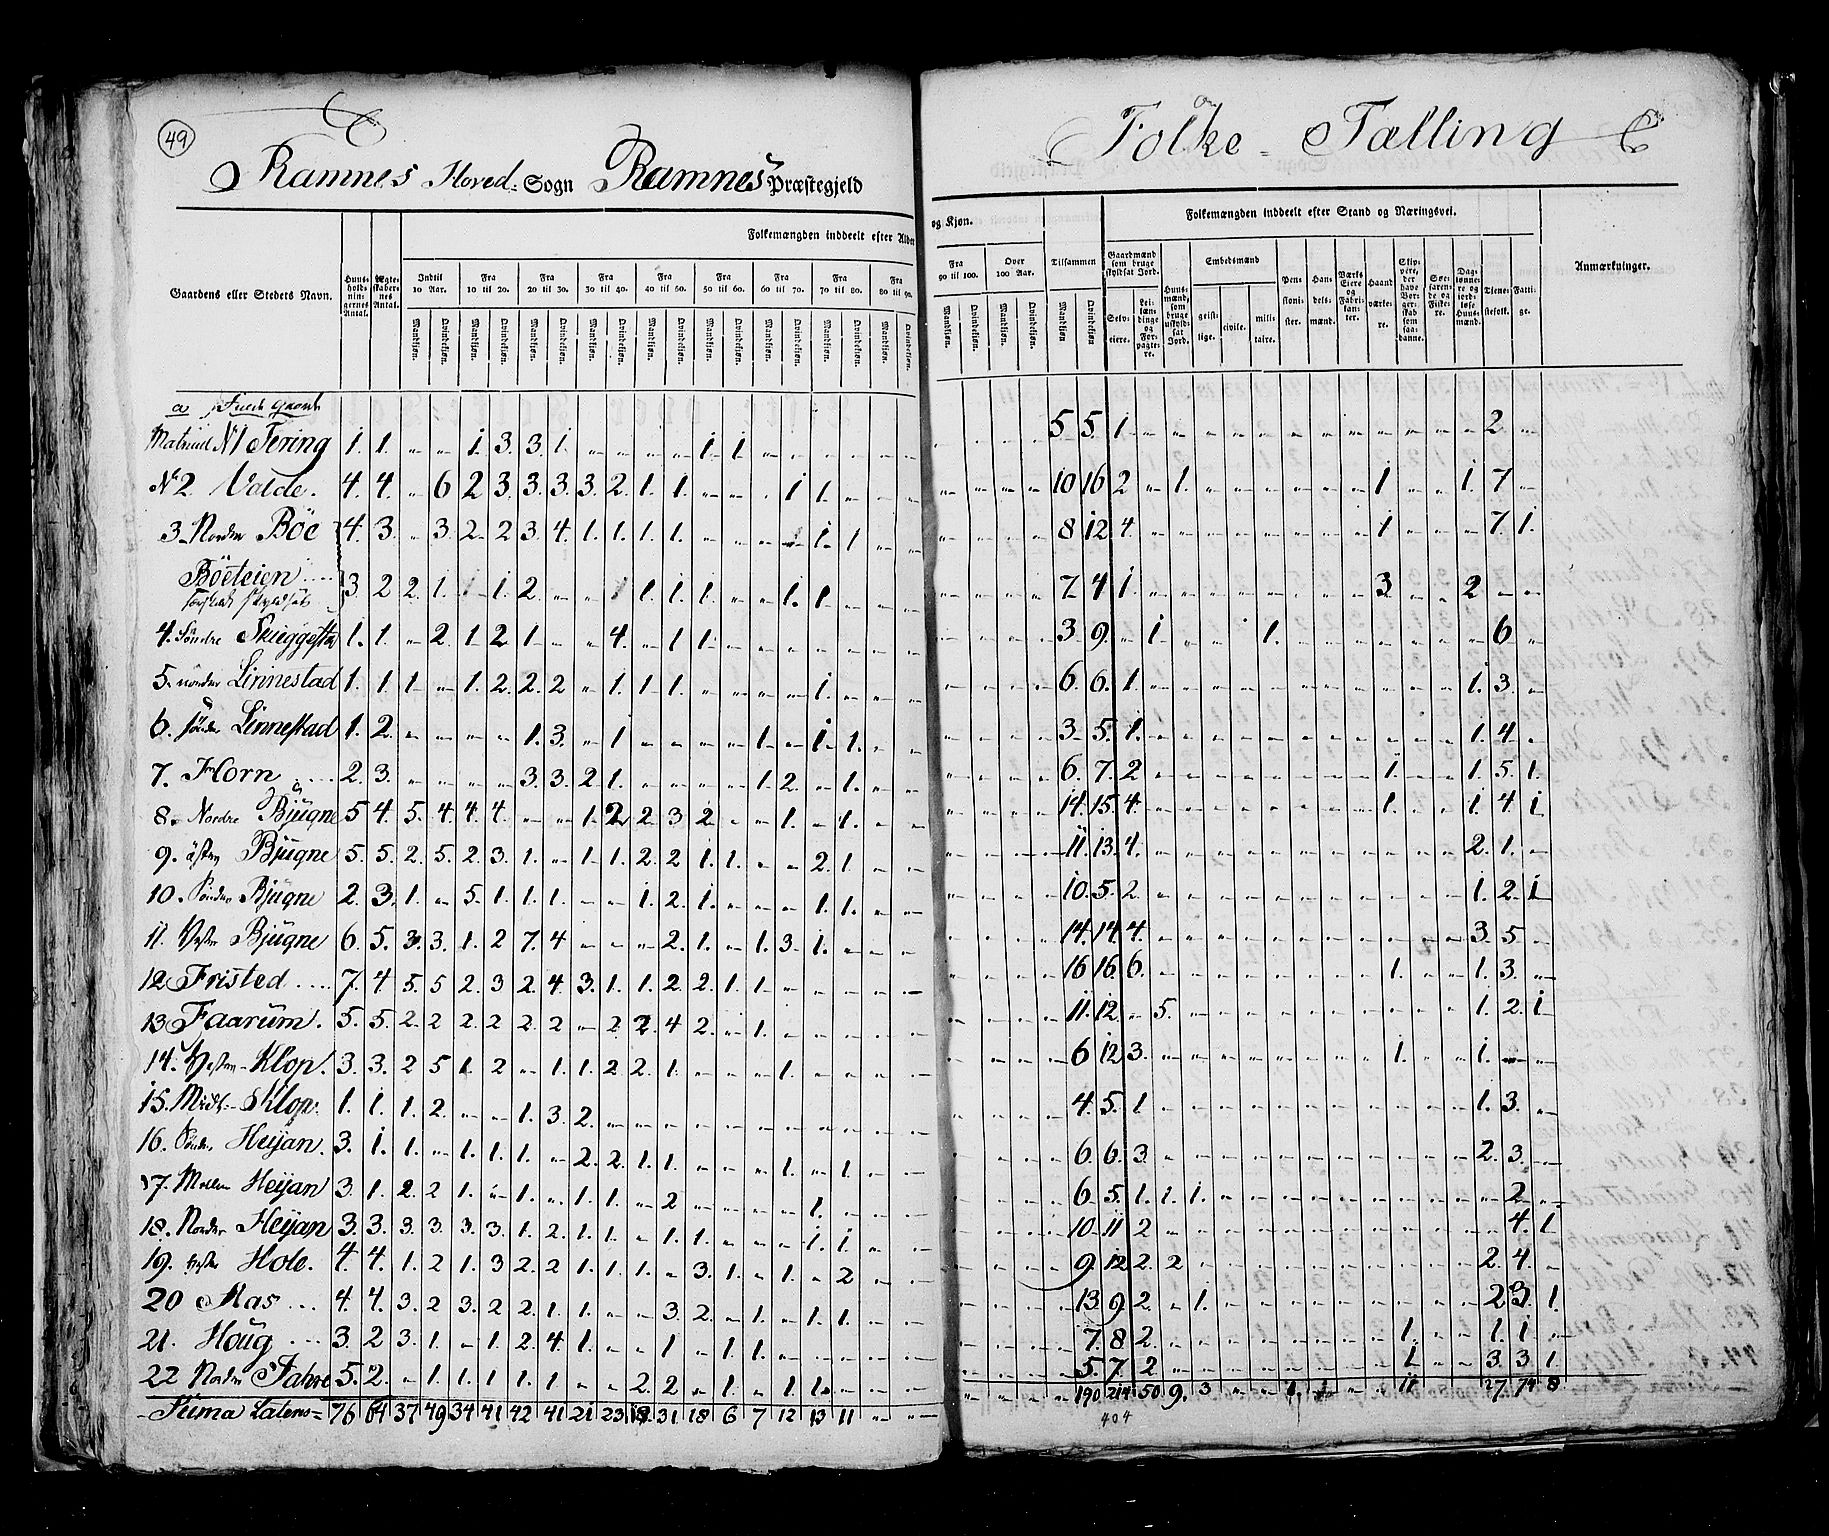 49
Ramnes Hoved- Sogn Ramnes Præstegjeld
Folke- Tælling
Gaardens eller Stedets Navn.
Huus-holdnin-gernes Antal.
Ægte-skaber-nes Antal.
Folkemængden inddeelt efter Alder
og Kjøn.
Folkemængden inddeelt efter Stand og Næringsvei.
Anmærkninger.
Indtil 10 Aar.
Fra 10 til 20.
Fra 20 til 30.
Fra 30 til 40.
Fra 40 til 50.
Fra 50 til 60.
Fra 60 til 70.
Fra 70 til 80.
Fra 80 til 90.
Fra 90 til 100.
Over 100 Aar.
Tilsammen
Mandkjøn. Qvindekjøn.
Gaardmænd som bruge skyldsat Jord.
Selv-eiere.
Lei-lændinge og For-pagte-re.
Huus-mænd, som bruge uskyld-sat Jord.
Embedsmænd
geist-lige.
civile.
mili-taire.
Pen-sioni-ster.
Han-dels-mænd.
Værks Eiere og Fabri-kanter.
Haand værke-re.
Skip-pere, der have Bor-ger-skab som saa-danne.
Søe-faren-de og Fiske-re.
Dag-lønne-re og jord-løse Huus-mænd.
Tiene-stefolk.
Fatti-ge.
Matricul N1 Fering 1. 1. 1. 3 3. 1. 1. 1. 5 5 1 2
N2 Valde. 4. 4. 6 2 3. 3. 3. 3. 2. 1. 1. 1 1. 10 16 2 1. 1 1. 7
3 Nordre Böe 4. 3. 3. 2 2 3. 4. 1. 1. 1. 1. 1. 1 8 12 4. 1 7. 1.
Böeteien 3 2 2. 1. 1. 2. 1 1. 1. 1. 1. 1. 7 4 1. 3 2
4. Söndre Skieggesta 1. 1. 2. 1. 2 1. 4. 1 1. 3 9. 1. 1. 6
5. nordre Linnestad 1. 1. 1. 1. 2. 2. 2 1. 1. 1. 1. 6. 6. 1. 1. 3.
6. söndre Linnestad 1. 2. 1. 3. 1 1. 1. 1. 3. 5. 1. 1. 4.
7. Horn 2. 3. 3. 3. 2 1. 1. 2. 1. 6. 7. 2 1. 1. 5. 1.
8. Nordre Bjugne 5 4. 5. 4. 4. 4. 1. 2 2. 3 2. 1. 1. 14. 15. 4. 1. 1. 4 1
9. östen Bjugne 5. 5. 2. 5. 2. 3. 1. 1. 1. 2. 2 1. 1. 2. 1. 11. 13. 4. 2. 1.
10. Söndre Bjugne 2. 3. 1. 5. 1. 1. 1. 1. 2. 1. 1. 1. 10. 5. 2. 1. 2. 1
11. Vestre Bjugne 6. 5. 3. 3. 1. 2 7. 4 2. 1. 1. 3. 1. 14. 14. 4. 3. 5
12 Fristed 7. 4 5. 5 2. 3 2. 4. 3. 1. 1. 2 2. 1. 1. 16 16. 6. 1. 1. 3.
13 Faarum. 5. 5. 2. 2 2. 2 2. 2 2. 2. 4 2. 1. 11. 12. 5. 1. 2. 1
14. Vesten Klop. 3. 3. 2 5 1. 2 1. 1. 2 2. 1. 1. 6 12 3. 1. 1.
15. Midt- Klop. 1. 1. 1. 2. 1. 3 2. 4. 5. 1 1. 3.
16. Söndre Heijan. 3. 1. 1. 1. 1. 1. 2. 2. 1. 1. 1. 1. 6. 6. 3. 2. 3.
17. Mellem Heijan 3. 1. 2. 2 1. 1. 1. 1. 2 1. 6. 5. 1. 1. 1. 2
18. Nordre Heijan 3. 3. 3. 3. 3. 3. 1. 2. 1. 1. 1. 1. 1. 1. 10. 11 2 4. 1.
19. Vestre Hole. 4. 4. 1. 2 1. 3 2. 2 1. 1. 1. 3. 1. 1. 2 9. 12 2. 2 2. 4.
20 Aas 4. 4. 3. 2 3. 2 2. 1. 1. 3 2. 1. 1. 1. 13. 9 2. 1. 2 3. 1.
21. Houg 3. 2 3. 1. 1. 2. 4. 1. 1. 1. 1. 7. 8 2. 1. 1. 1
22 Nordre Fahre 5. 2. 1. 1. 1. 1. 1. 2. 2. 1. 1. 1. 5. 7. 2 1 3. 3 1.
Suma Latens = 76 64 37 49 34 41 42 41 21 23 19 31 18 6 7 12 13 11 190 214 50 9. 3 11 27. 74 8
404